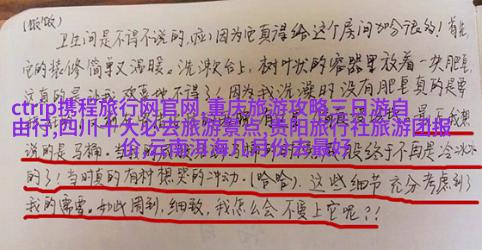 (饭饭)
卫生间是不得不说的，啦！因为它真得给这个房间加分很多！首先，
它的装修简单又温暖。洗漱台上，树叶状的容器里放着一块肥皂，
这真的是让我欢喜地不得了！因为我洗澡时没有肥皂真的是
ctrip携程旅行网官网,重庆旅游攻略三日游自
由行,四川十大必去旅游景点,贵阳旅行社旅游团报
价,云南洱海几月份去最好
最不我想
说的是马桶。
终于不再是冷冰冰
的了！当时真的有种想哭的冲动。(哈哈)。这些细节充分考虑到了
我的需要。如此周到，细致，我怎么会不爱上它呢？！